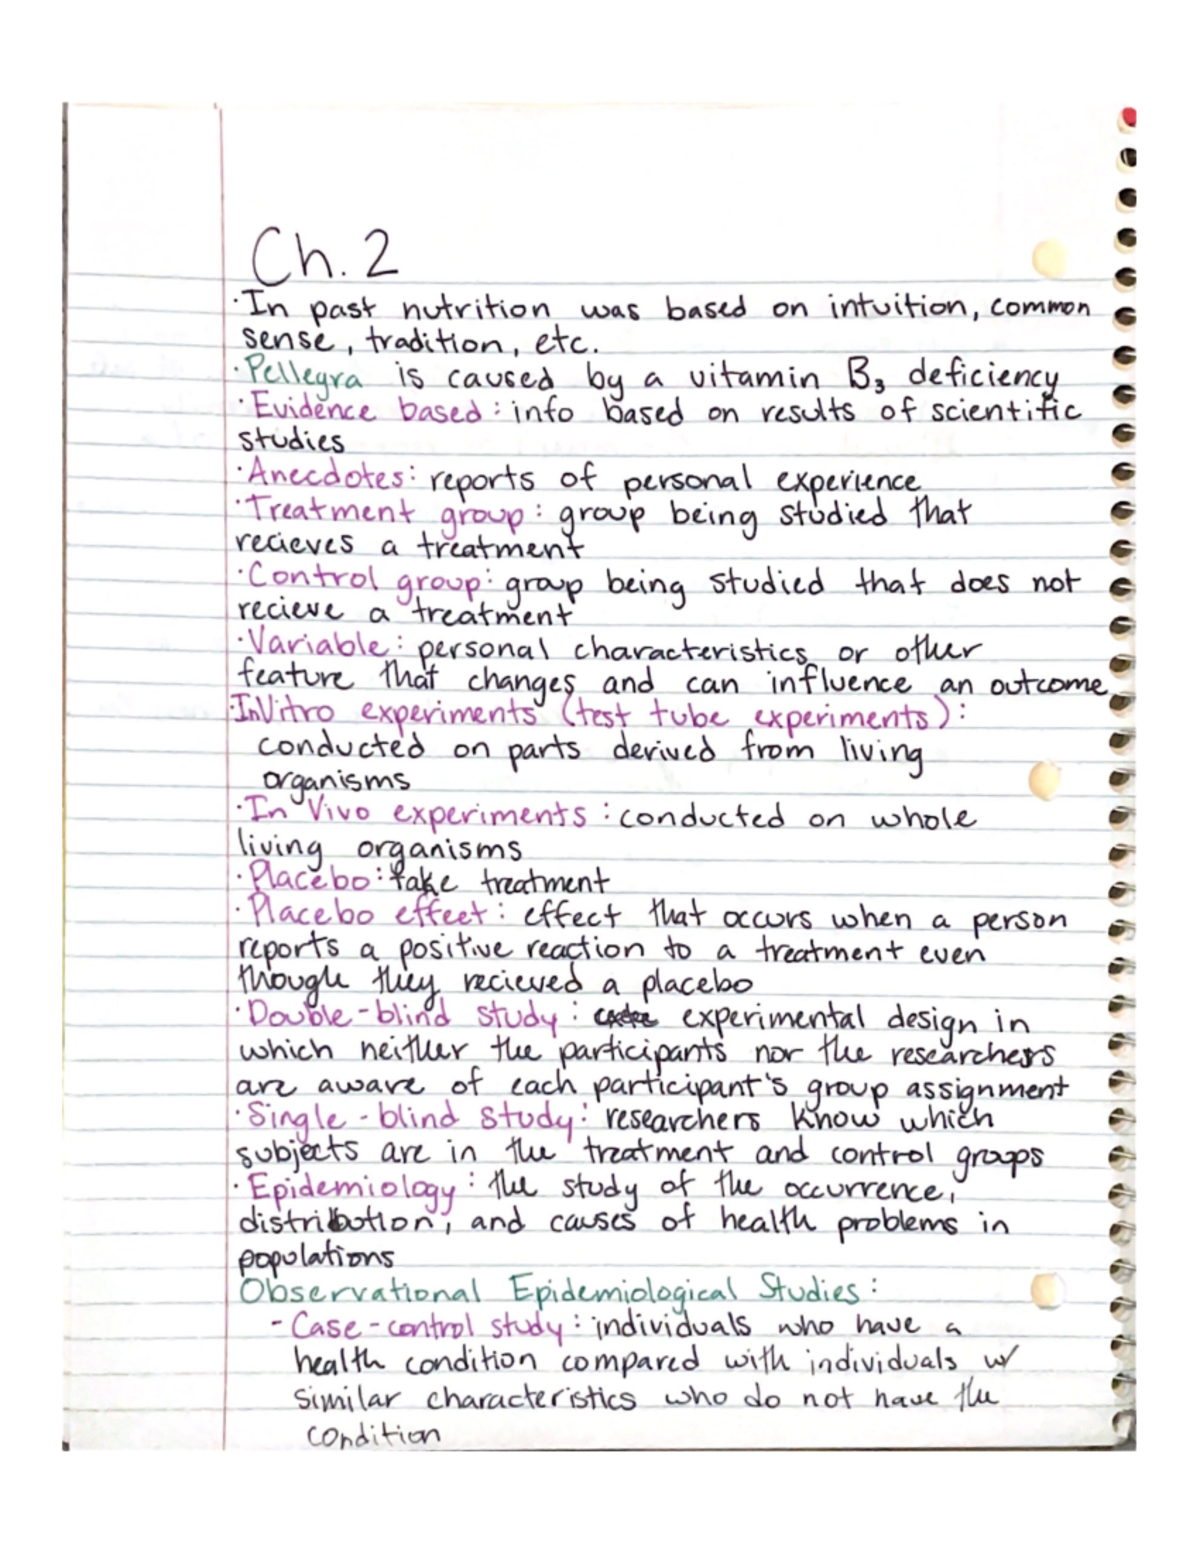 Ch. 2
·In past nutrition was based on intuition, common
sense, tradition, etc.
·Pellegra is caused by a vitamin B₃ deficiency
·Evidence based: info based on results of scientific
studies
·Anecdotes: reports of personal experience
·Treatment group: group being studied that
recieves a treatment
·Control group: group being studied that does not
recieve a treatment
·Variable: personal characteristics or other
feature that changes and can influence an outcome
·InVitro experiments (test tube experiments):
conducted on parts derived from living
organisms
·In Vivo experiments: conducted on whole
living organisms
·Placebo: fake treatment
·Placebo effect: effect that occurs when a person
reports a positive reaction to a treatment even
though they recieved a placebo
·Double-blind study: experimental design in
which neither the participants nor the researchers
are aware of each participant's group assignment
·Single-blind study: researchers know which
subjects are in the treatment and control groups
·Epidemiology: the study of the occurrence,
distribution, and causes of health problems in
populations
Observational Epidemiological Studies:
- Case-control study: individuals who have a
health condition compared with individuals w/
similar characteristics who do not have the
condition